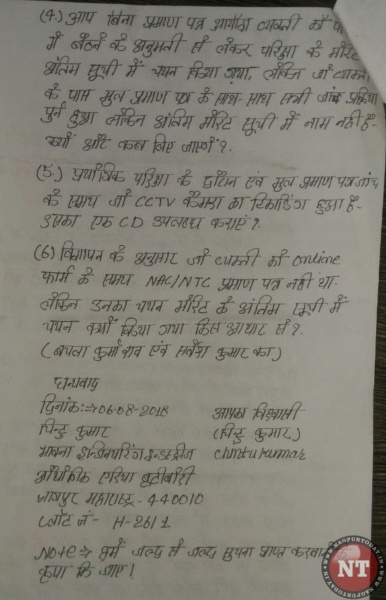 (4.) आप बिना प्रमाण पत्र व्यक्ती को
में बैठने के अनुमती से लेकर परिक्षा के मेरिट
अंतिम सूची में चयन किया गया, लेकिन जो व्यक्ती
के पास मुल प्रमाण पत्र के साथ-साथ सभी जांच प्रक्रिया
पुर्न हुआ लेकिन अंतिम मेरिट सूची में नाम नही है-
क्यों और कब लिए जाएगें?.
(5.) प्रयोगिक परिक्षा के दौरान एवं मुल प्रमाण पत्र जांच
के समय जो CCTV कैमरा का रिकार्डिंग हुआ है-
उसका एक CD उपलब्ध कराएं?.
(6) विज्ञापन के अनुसार जो व्यक्ती को online
फार्म के समय NAC/NTC प्रमाण पत्र नही था.
लेकिन उनका चयन मेरिट के अंतिम सूची में
चयन क्यों किया गया किस आधार से?.
( एवं कुमार का)
धन्यवाद
दिनांक:⇒06-08-2018 आपका विश्वासी
पिन्टु कुमार (पिन्टु कुमार)
भावना इन्जिनयरिंग इन्डस्ट्रीज
औधोगीक एरिया बुटीबोरी
नागपुर महाराष्ट्र - 440010
प्लॉट नं- H-26/1
Note⇒ हमें जल्द से जल्द सुचना प्राप्त करवाने
कृपा कि जाए।
WWW.NAGPURTODAY.IN
NT